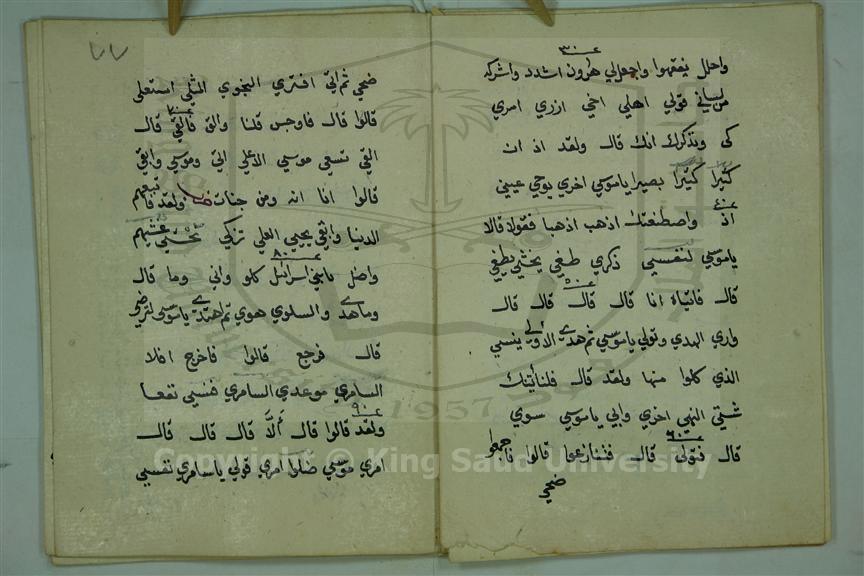 عـ٣٠ـة
واحلل يفقهوا واجعل لي هارون اشدد واشركه
من لساني قولي اهلي اخي ازري امري
كي ونذكرك انك قال ولقد اذ ان
كثيرا كثيرا بصيرا ياموسي اخري يوحي عيني
عـ٤٠ـة
اذ واصطنعتك اذهب اذهبا فقولا قالا
ياموسي لنفسي ذكري طغي يخشي يطغي
عـ٥٠ـة
قال فاتياه انا قال قال قال قال
واري الهدي وتولي ياموسي ثم هدي الاولي ينسي
الذي كلوا منها ولقد قال فلنأتينك
شتي النهي اخري وابي ياموسي سوي
عـ٦٠ـة
قال فتولى قال فتنازعوا قالوا فاجمعوا
ضحي
٧٧
ضحي ثم اتي افتري النجوي المثلي استعلي
عـ٧٠ـة
قالوا قال فاوجس قلنا والق فالقي قال
القي تسعي موسي الاعلي اتي وموسي وابقي
قالوا انا انه ومن جنات ولقد فاتبعهم
الدنيا وابقي يحيي العلي تزكي تخشي غشيهم
عـ٨٠ـة
واضل يابني اسرائيل كلوا واني وما قال
وماهدي والسلوي هوي ثم اهتدي ياموسي لترضي
قال فرجع قالوا فاخرج افلا
السامري موعدي السامري فنسي نفعا
عـ٩٠ـة
ولقد قالوا قال ألا قال قال قال
امري موسي ضلوا امري قولي ياسامري نفسي
1957
Copyright © King Saud University